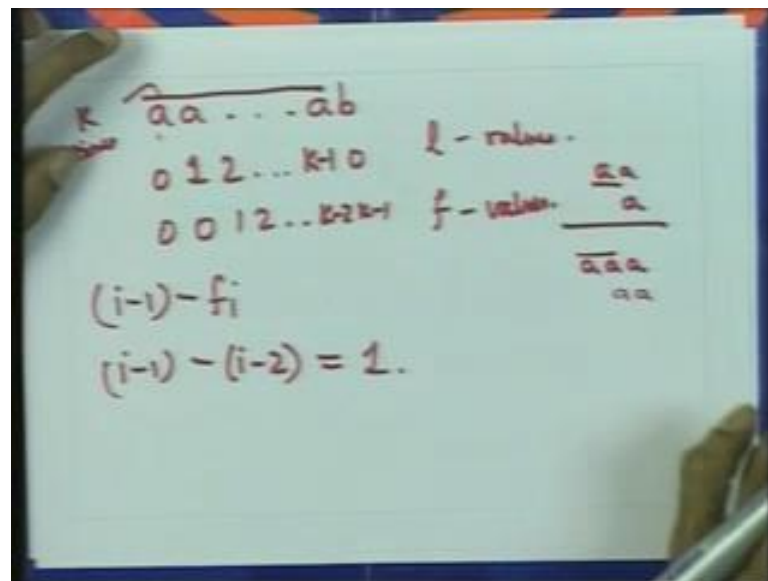 K aa . . . ab
0 1 2 ... K-1 0 l - value.
0 0 1 2 .. K-2 K-1 f - value.
aa
a
aaa
aa
(i-1) - fi
(i-1) - (i-2) = 1.